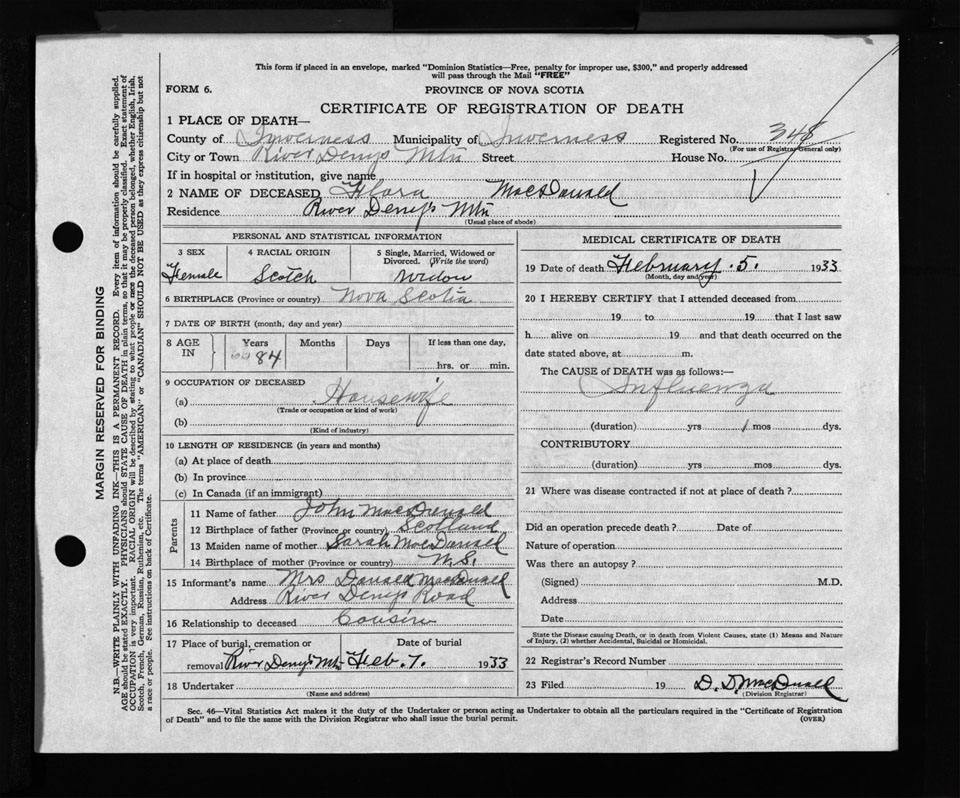 This form if placed in an envelope, marked "Dominion Statistics—Free, penalty for improper use, $300," and properly addressed
will pass through the Mail "FREE"
FORM 6.
PROVINCE OF NOVA SCOTIA
CERTIFICATE OF REGISTRATION OF DEATH
1 PLACE OF DEATH—
County of Inverness Municipality of Inverness Registered No. 348
(For use of Registrar General only)
City or Town River Denys Mtn Street House No.
If in hospital or institution, give name
2 NAME OF DECEASED Flora MacDonald
Residence River Deny's Mtn
(Usual place of abode)
PERSONAL AND STATISTICAL INFORMATION
3 SEX 4 RACIAL ORIGIN 5 Single, Married, Widowed or
Divorced. (Write the word)
Female Scotch Widow
6 BIRTHPLACE (Province or country) Nova Scotia
7 DATE OF BIRTH (month, day and year)
8 AGE IN Years Months Days If less than one day,
84 hrs. or min.
9 OCCUPATION OF DECEASED
(a) Housewife
(Trade or occupation or kind of work)
(b)
(Kind of industry)
10 LENGTH OF RESIDENCE (in years and months)
(a) At place of death
(b) In province
(c) In Canada (if an immigrant)
Parents
11 Name of father John MacDonald
12 Birthplace of father (Province or country) Scotland
13 Maiden name of mother Sarah MacDonald
14 Birthplace of mother (Province or country) N.S.
15 Informant's name Mrs Donald MacDonald
Address River Denys Road
16 Relationship to deceased Cousin
17 Place of burial, cremation or Date of burial
removal River Deny's Mtn Feb. 7. 1933
18 Undertaker
(Name and address)
MEDICAL CERTIFICATE OF DEATH
19 Date of death February 5. 1933
(Month, day and year)
20 I HEREBY CERTIFY that I attended deceased from
19 to 19 that I last saw
h alive on 19 and that death occurred on the
date stated above, at m.
The CAUSE of DEATH was as follows:—
Influenza
(duration) yrs 1 mos dys.
CONTRIBUTORY
(duration) yrs mos dys.
21 Where was disease contracted if not at place of death?
Did an operation precede death? Date of
Nature of operation
Was there an autopsy?
(Signed) M.D.
Address
Date
State the Disease causing Death, or in death from Violent Causes, state (1) Means and Nature
of Injury, (2) whether Accidental, Suicidal or Homicidal.
22 Registrar's Record Number
23 Filed 19 D. MacDonald
(Division Registrar)
Sec. 46—Vital Statistics Act makes it the duty of the Undertaker or person acting as Undertaker to obtain all the particulars required in the "Certificate of Registration
of Death" and to file the same with the Division Registrar who shall issue the burial permit. (OVER)
MARGIN RESERVED FOR BINDING
N.B.—WRITE PLAINLY WITH UNFADING INK—THIS IS A PERMANENT RECORD. Every item of information should be carefully supplied.
AGE should be stated EXACTLY. PHYSICIANS should STATE CAUSE OF DEATH in plain terms, so that it may be properly classified. Exact statement of
OCCUPATION is very important. RACIAL ORIGIN will be described by stating to what people or race the deceased person belonged, whether English, Irish,
Scotch, French, German, Russian, Ruthenian, etc. The terms "AMERICAN" or "CANADIAN" SHOULD NOT BE USED as they express citizenship but not
a race or people. See instructions on back of Certificate.